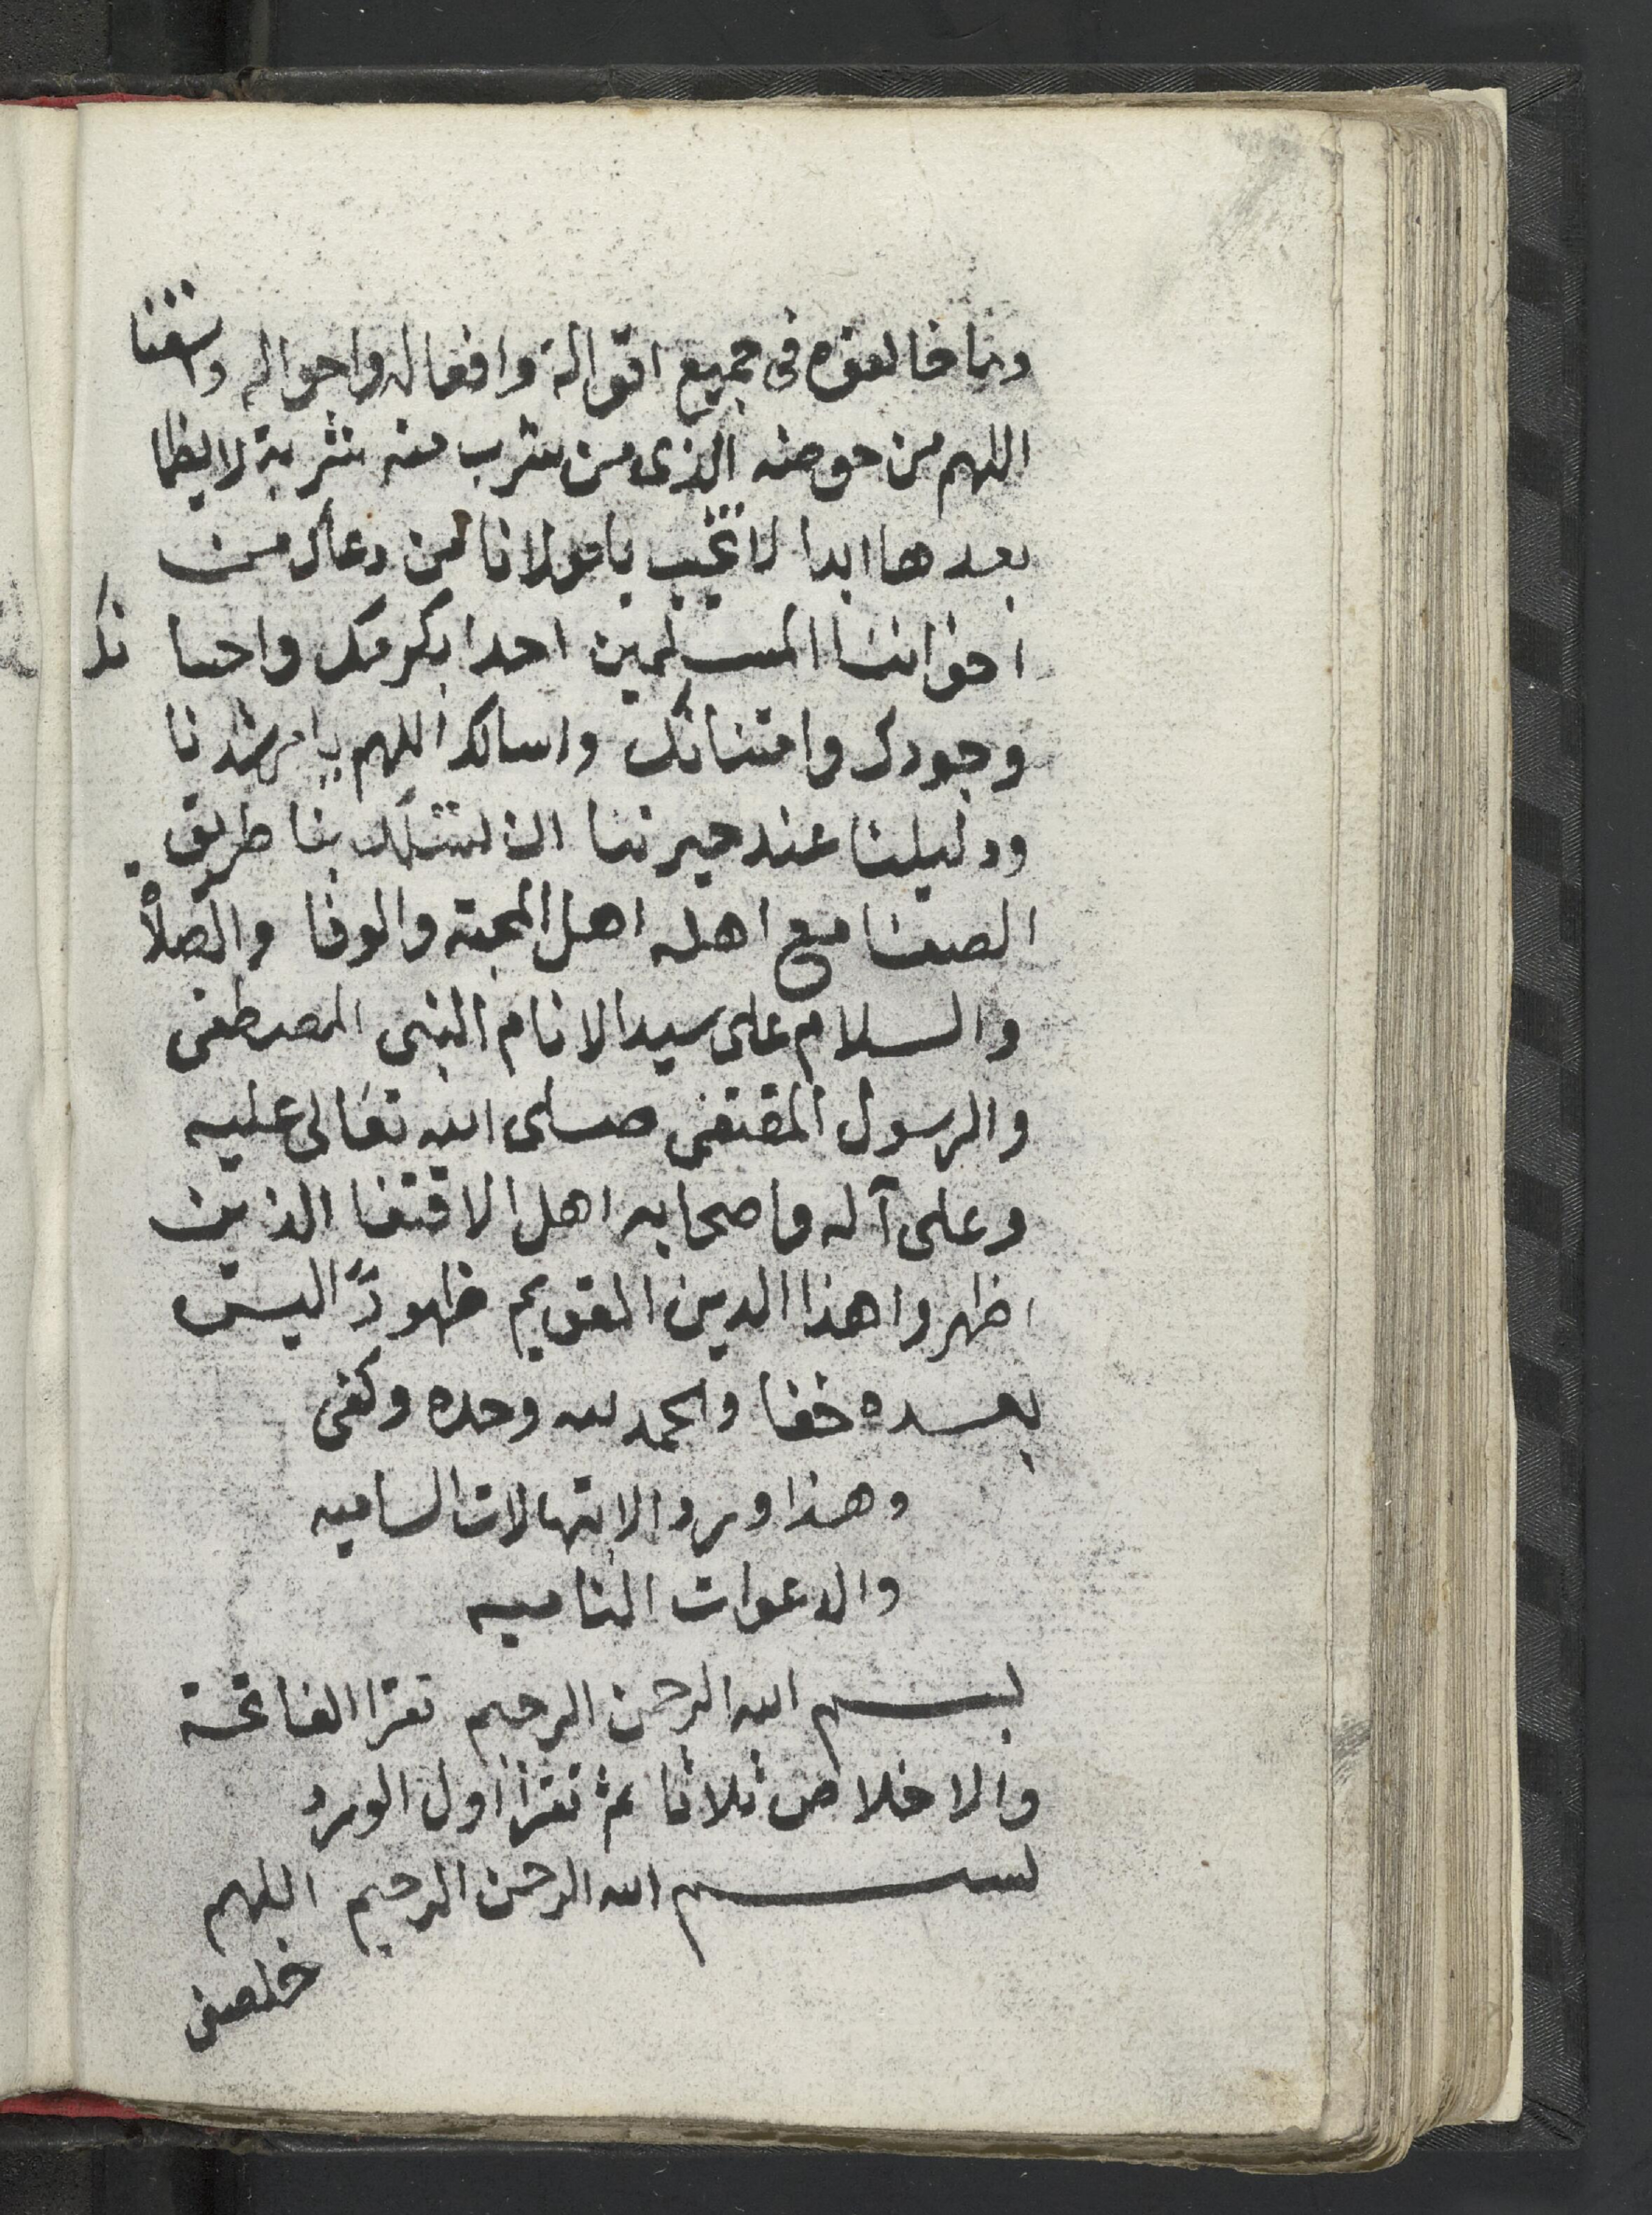 وما خالفوه في جميع اقواله وافعاله واحواله واسقنا
اللهم من حوضه الذى من شرب منه شربة لا يظما
بعدها ابدا لا تخيب يا مولانا لمن دعاك من
اخواننا المسلمين احدا بكرمك واحسا نك
وجودك وامتنانك واسالك اللهم يا مرشدنا
ودليلنا عند حيرتنا ان تسلك بنا طريق
الصفا مع اهله اهل المحبة والوفا والصلاة
والسلام على سيد الانام النبى المصطفى
والرسول المقتفى صلى الله تعالى عليه
وعلى آله واصحابه اهل الاقتفا الذين
اظهروا هذا الدين القويم ظهورًا ليس
بعده خفا والحمد لله وحده وكفى
وهذا ورد الابتهالات الساميه
والدعوات الناميه
بسم الله الرحمن الرحيم تقرا الفاتحة
والاخلاص ثلاثا ثم تقرا اول الورد
بسم الله الرحمن الرحيم اللهم
خلصنى